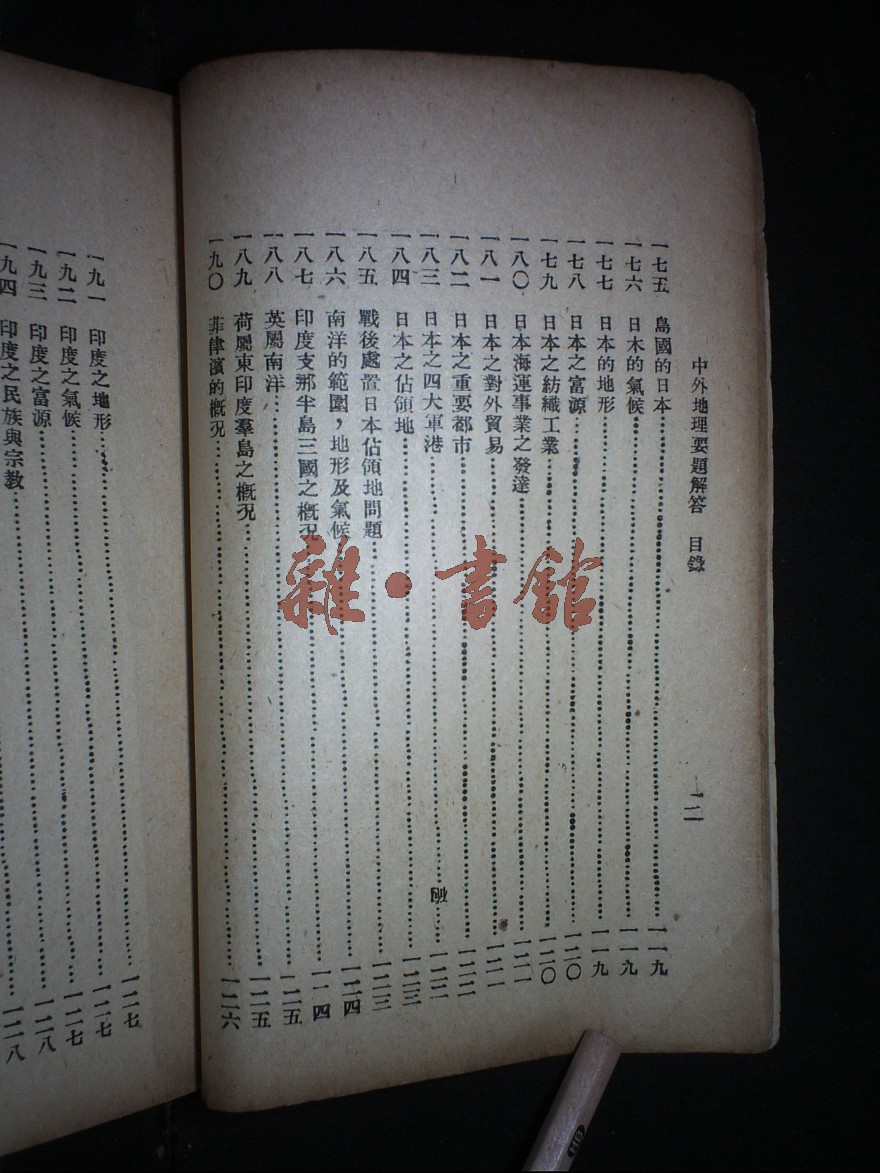 中外地理要題解答 目錄
一二
一七五 島國的日本……一一九
一七六 日木的氣候……一一九
一七七 日本的地形……一一九
一七八 日本之富源……一二〇
一七九 日本之紡織工業……一二〇
一八〇 日本海運事業之發達……一二一
一八一 日本之對外貿易……一二一
一八二 日本之重要都市……一二二
一八三 日本之四大軍港……一二二
一八四 日本之佔領地……一二三
一八五 戰後處置日本佔領地問題……一二三
一八六 南洋的範圍，地形及氣候……一二四
一八七 印度支那半島三國之槪况……一一四
一八八 英屬南洋……一二五
一八九 荷屬東印度羣島之槪况……一二五
一九〇 菲律濱的槪况……一二六
一九一 印度之地形……一二七
一九二 印度之氣候……一二七
一九三 印度之富源……一二七
一九四 印度之民族與宗教……一二八
一二八
雜·書館
HB